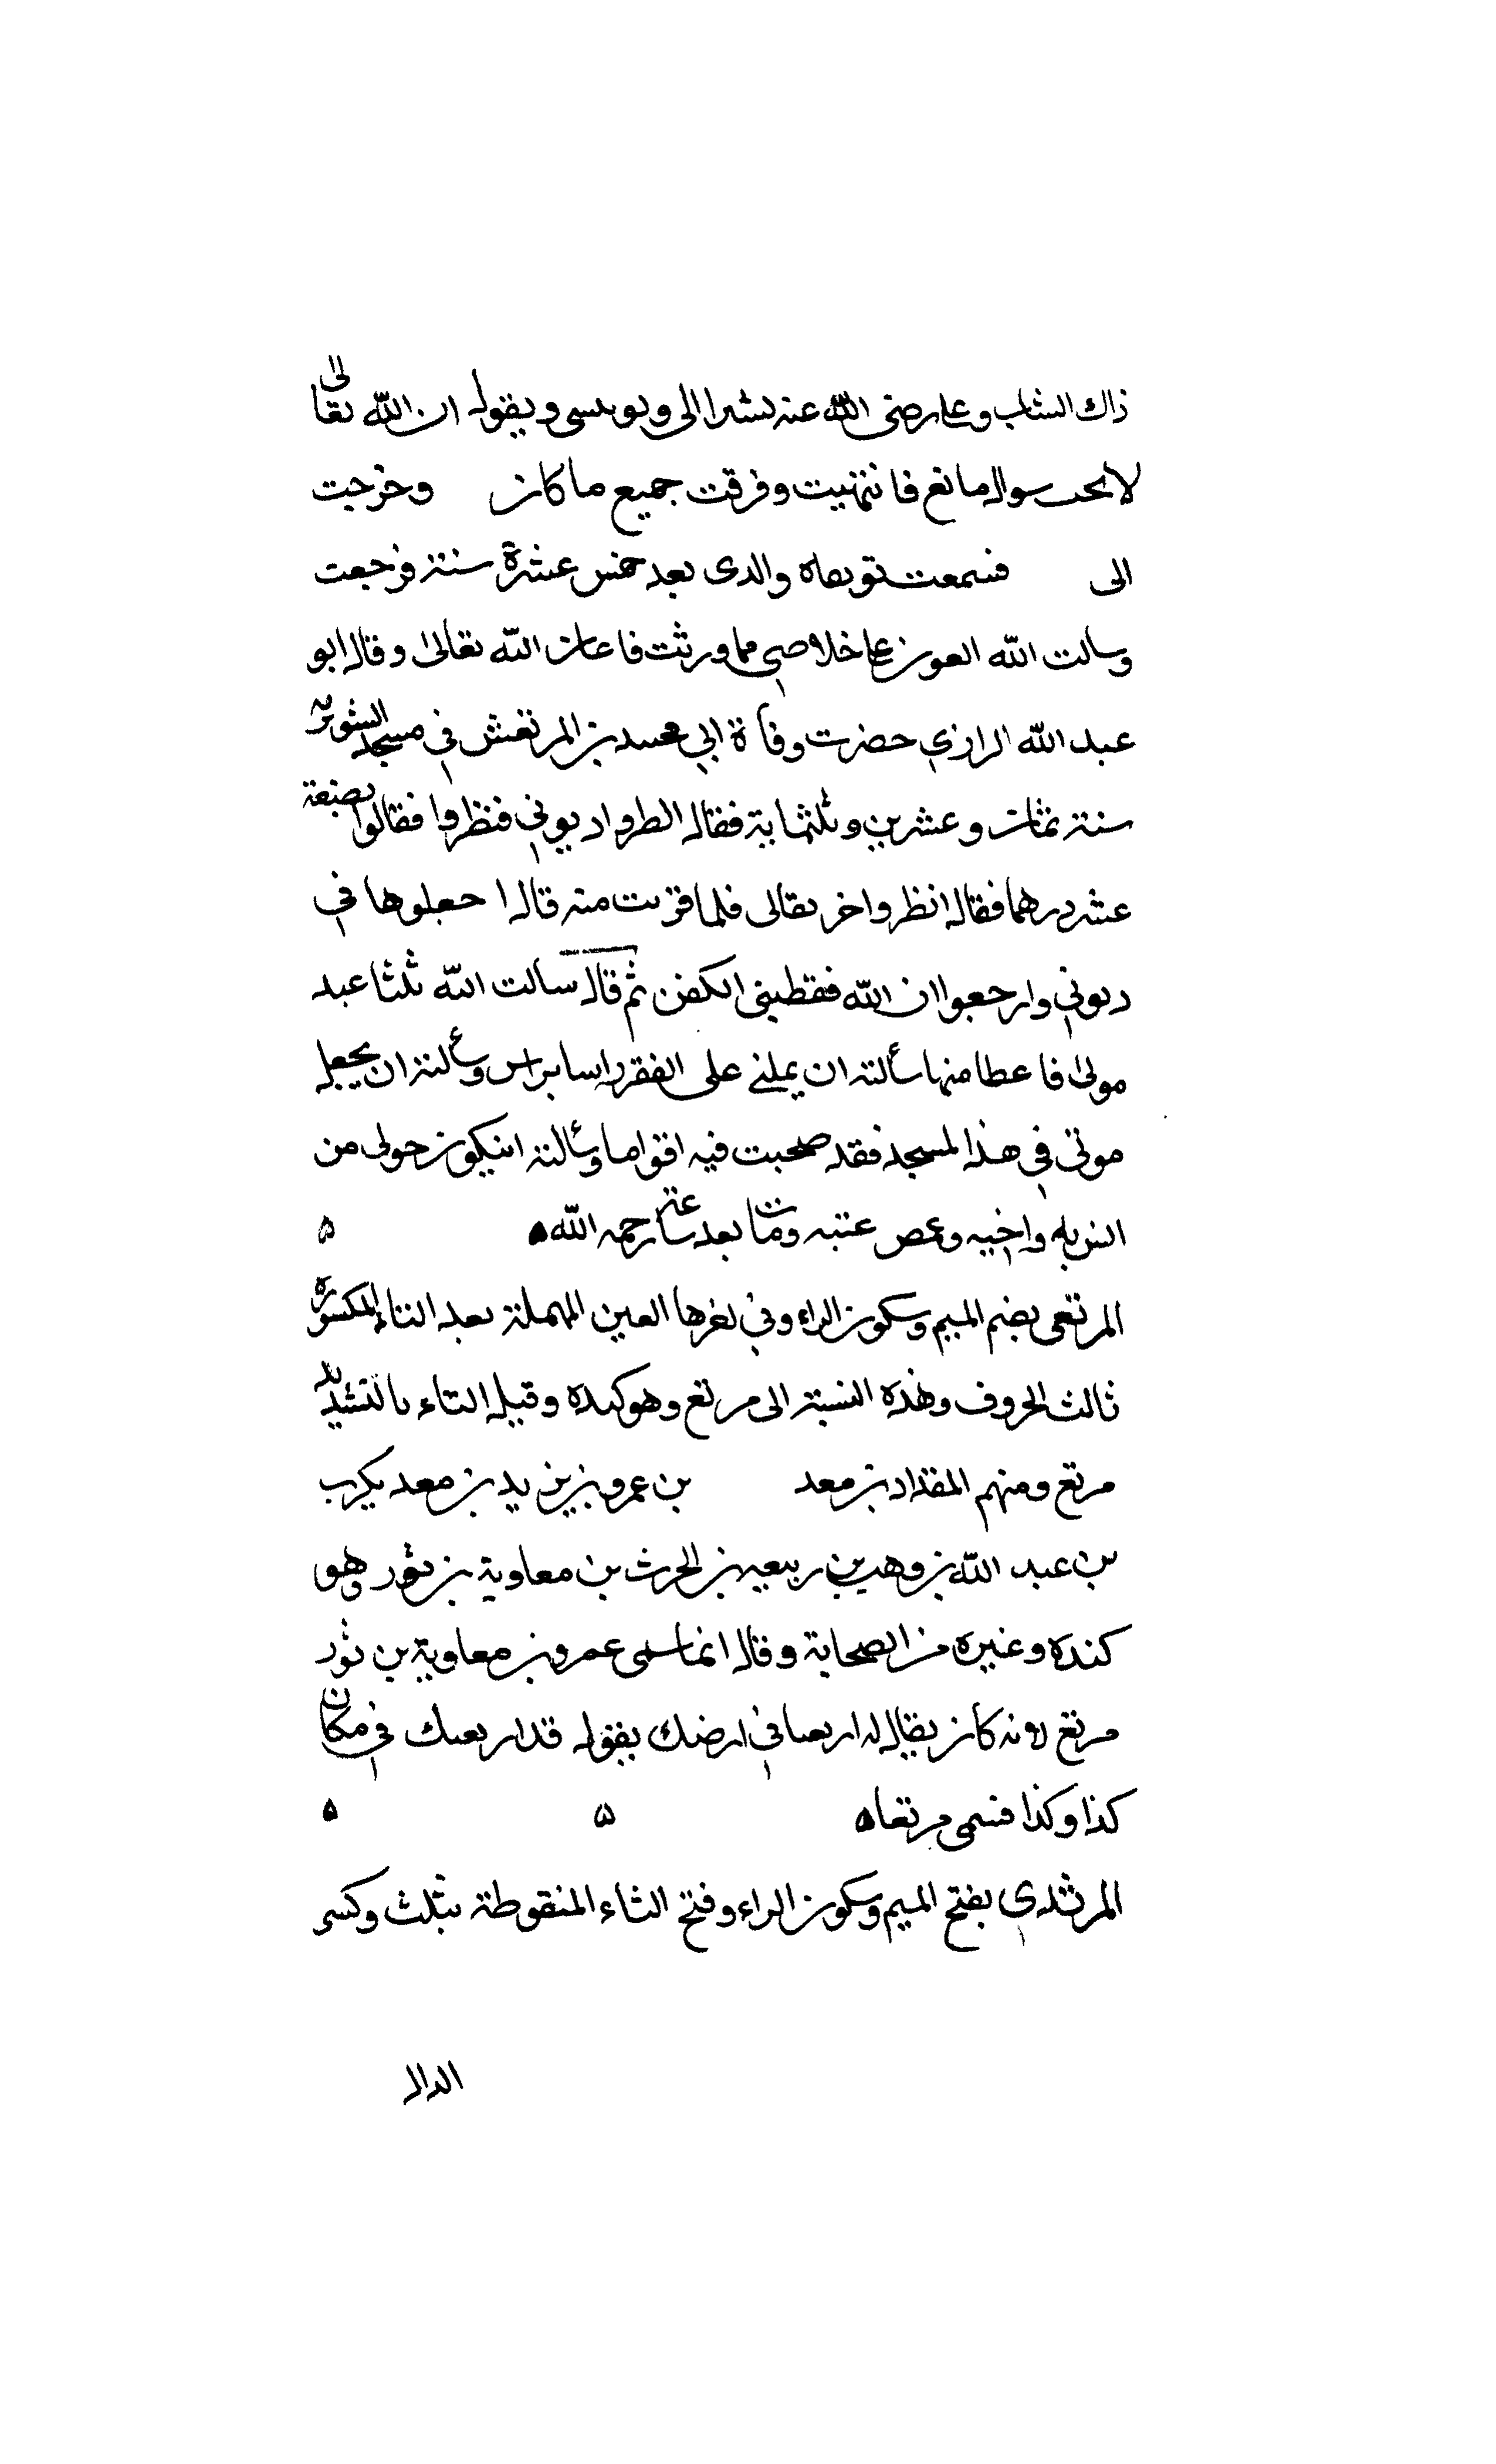 ذاك الشاب وعلى رضى الله عنه يشير الى ويوبخني ويقول ان الله تعالى
لا يحب سوال مانع فانتهيت وفرقت جميع ما كان وخرجت
الى فسمعت بوفاه والدى بعد خمس عشرة سنة فرجعت
وسالت الله العون على خلاصي مما ورثت فاعان الله تعالى وقال ابو
عبد الله الرازي حضرت وفاة ابي محمد بن المرتعش في مسجد الشونيزيه
سنة ثمان وعشرين وثلثماية فقال انظروا ديوني فنظروا فقالوا بضعة
عشر درهما فقال انظروا خريقاتى فلما قربت منه قال اجعلوها في
ديوني وارجوا ان الله فقطينى الكفن ثم قال سالت الله ثلثا عند
موتى فاعطا منها سألته ان يملنے على الفقر راسا براس وسألته ان يجعل
موتى في هذا المسجد فقد صحبت فيه اقواما وسألته ان يكون حولى من
انس به واحبه وغمض عينيه ومات بعد ساعة رحمه الله ه ه
المرتعى بضم الميم وسكون الراء وفي اخرها العين المهملة بعد التاء المكسورة
ثالث الحروف وهذه النسبة الى مرتع وهو كنده وقيل التاء بالتشديد
مرتع ومنهم المقداد بن معد بن عمرو بن يزيد بن معد يكرب
بن عبد الله بن وهب بن ربيعه بن الحرث بن معاوية بن ثور وهو
كنده وغيره من الصحابة وقال انما سمى عمرو بن معاوية بن ثور
مرتع لانه كان يقال له ارتعنا في ارضك يقول قد ارتعتك في مكان
كذا وكذا فسمى مرتعا ه ه ه
المرثدي بفتح الميم وسكون الراء وفتح الثاء المنقوطة بثلث وكسر
الدال